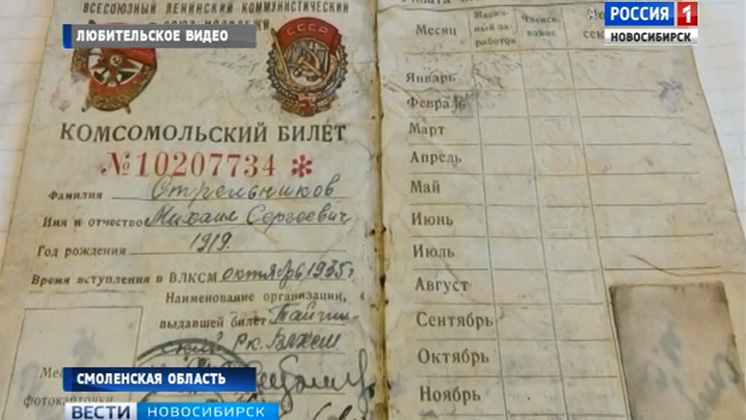 ЛЮБИТЕЛЬСКОЕ ВИДЕО
РОССИЯ 1
НОВОСИБИРСК
ВСЕСОЮЗНЫЙ ЛЕНИНСКИЙ КОММУНИСТИЧЕСКИЙ
СОЮЗ МОЛОДЕЖИ
КОМСОМОЛЬСКИЙ БИЛЕТ
№10207734 *
Фамилия Стрельников
Имя и отчество Михаил Сергеевич
Год рождения 1919.
Время вступления в ВЛКСМ октябрь 1935г.
Наименование организации,
выдавшей билет Тайгин-
ский Рк. ВЛКСМ.
Ме
фотокарточки
Месяц
Месяч-
ный за-
работок
Членск.
взнос
Январь
Февраль
Март
Апрель
Май
Июнь
Июль
Август
Сентябрь
Октябрь
Ноябрь
СМОЛЕНСКАЯ ОБЛАСТЬ
ВЕСТИ НОВОСИБИРСК